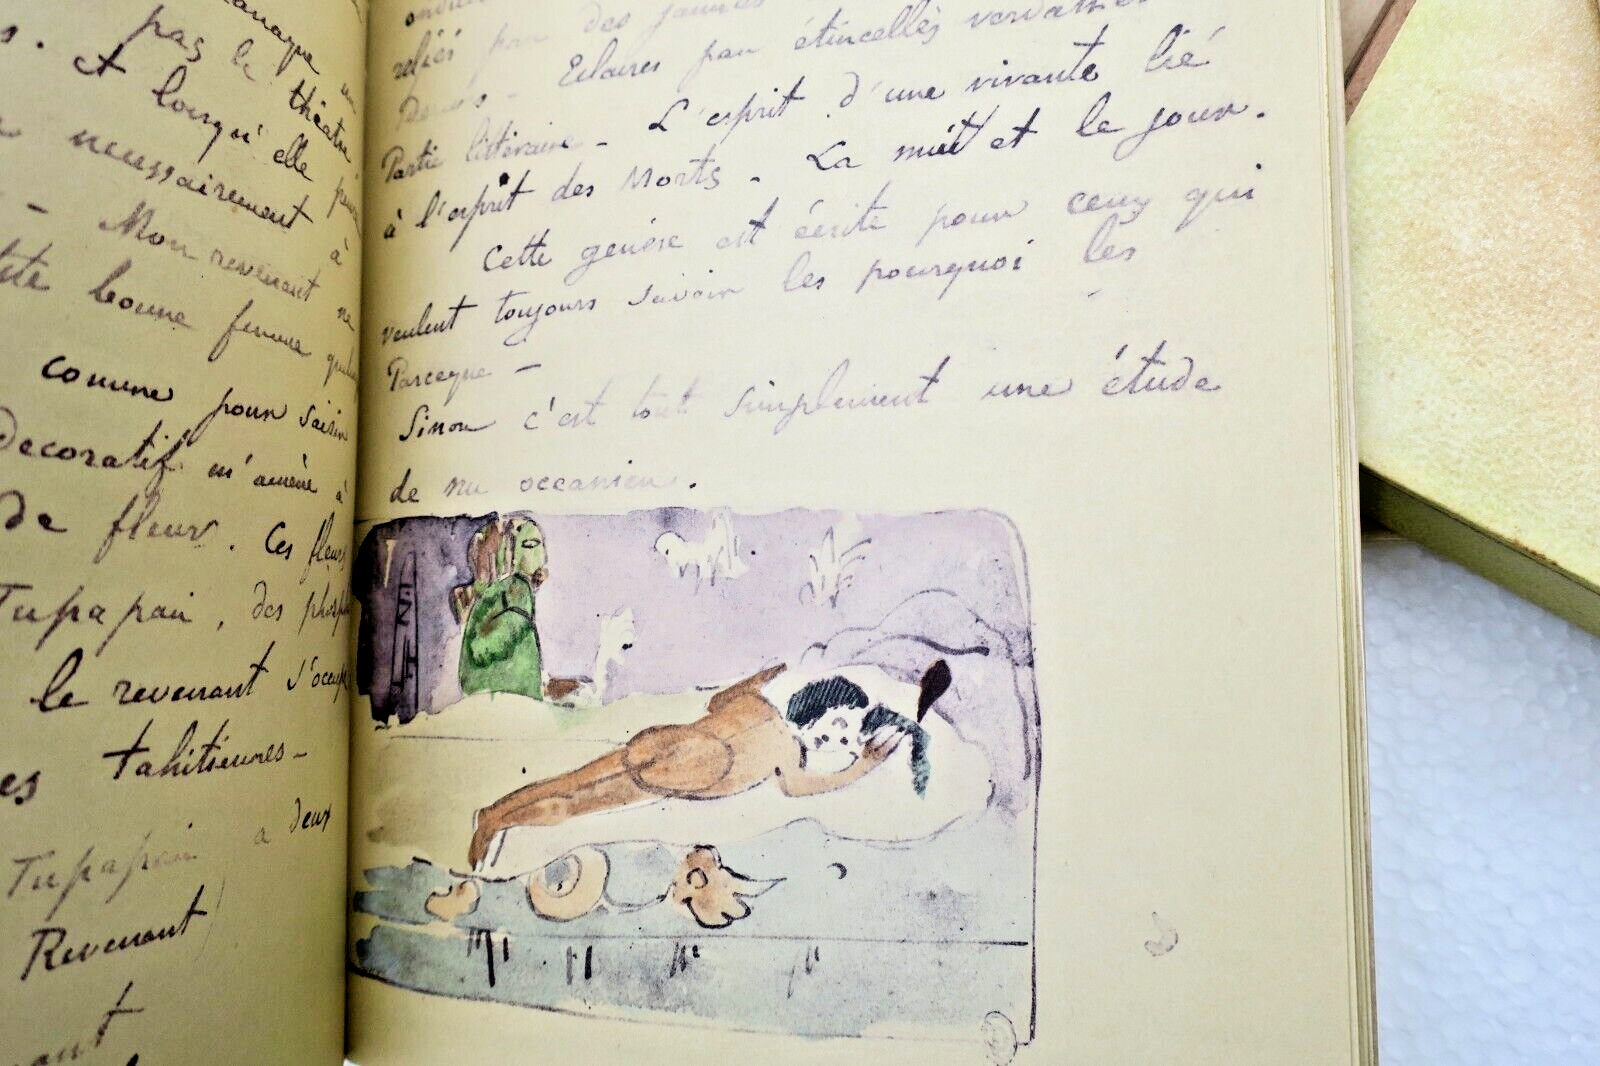 pas le théâtre
s. Et lorsqu'elle
neussairement à
- Mon revenant ne
bonne femme
comme pour saisir
Decoratif m'amène à
de fleur. Ces fleurs
Tupapau, des
le revenant s'occupe
es tahitiennes -
Tupapau a deux
Revenant
reliés par des jaunes
Eclairés par étincelles
Partie littéraire - L'esprit d'une vivante lié
à l'esprit des Morts - La nuit et le jour.
Cette genèse est écrite pour ceux qui
veulent toujours savoir les pourquoi les
Parceque -
Sinon c'est tout simplement une étude
de nu océanien.